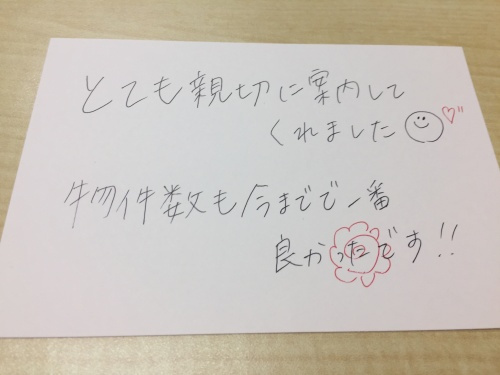 とても親切に案内して
くれました
物件数も今までで一番
良かったです!!